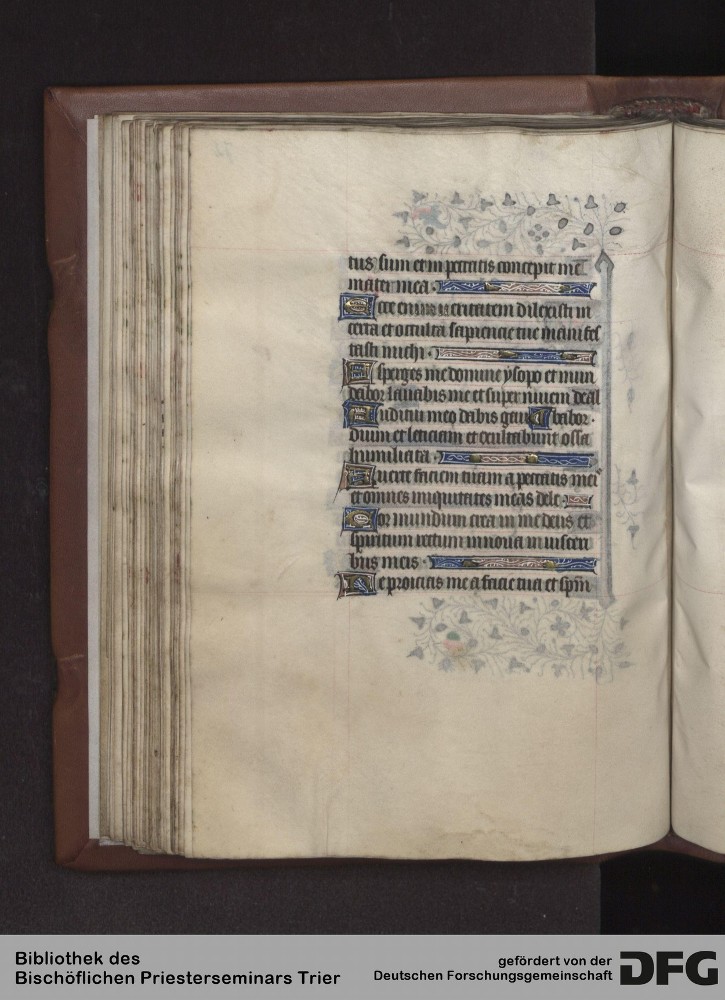 tus sum et in peccatis concepit me
mater mea.
Ecce enim ueritatem dilexisti in
certa et occulta sapiencie tue manifes
tasti michi.
Asperges me domine ysopo et mun
dabor lauabis me et super niuem deal
Auditui meo dabis gau babor.
dium et leticiam et exultabunt ossa
humiliata.
Auerte faciem tuam a peccatis meis
et omnes iniquitates meas dele.
Cor mundum crea in me deus et
spiritum rectum innoua in uisceri
bus meis.
Ne proicias me a facie tua et spm
Bibliothek des
Bischöflichen Priesterseminars Trier
gefördert von der
Deutschen Forschungsgemeinschaft
DFG